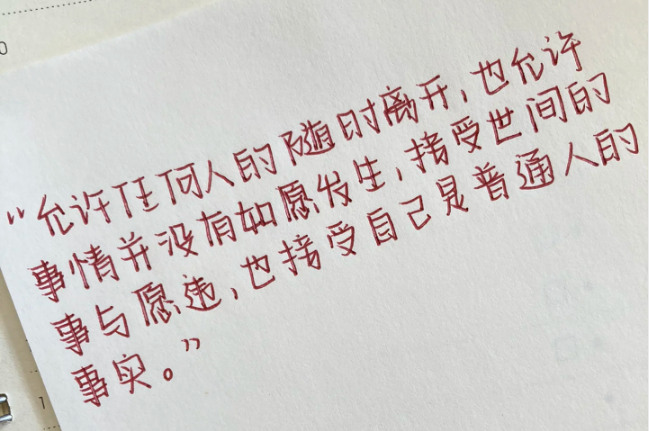 “允许任何人的随时离开，也允许
事情并没有如愿发生，接受世间的
事与愿违，也接受自己是普通人的
事实。”
0
1